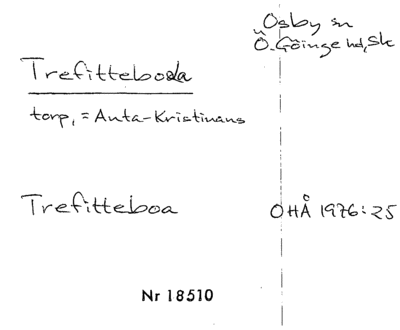 Osby sn
Ö. Göinge hd, Sk
Trefitteboda
torp, = Anta-Kristinans
Trefitteboa
OHÅ 1976:25
Nr 18510